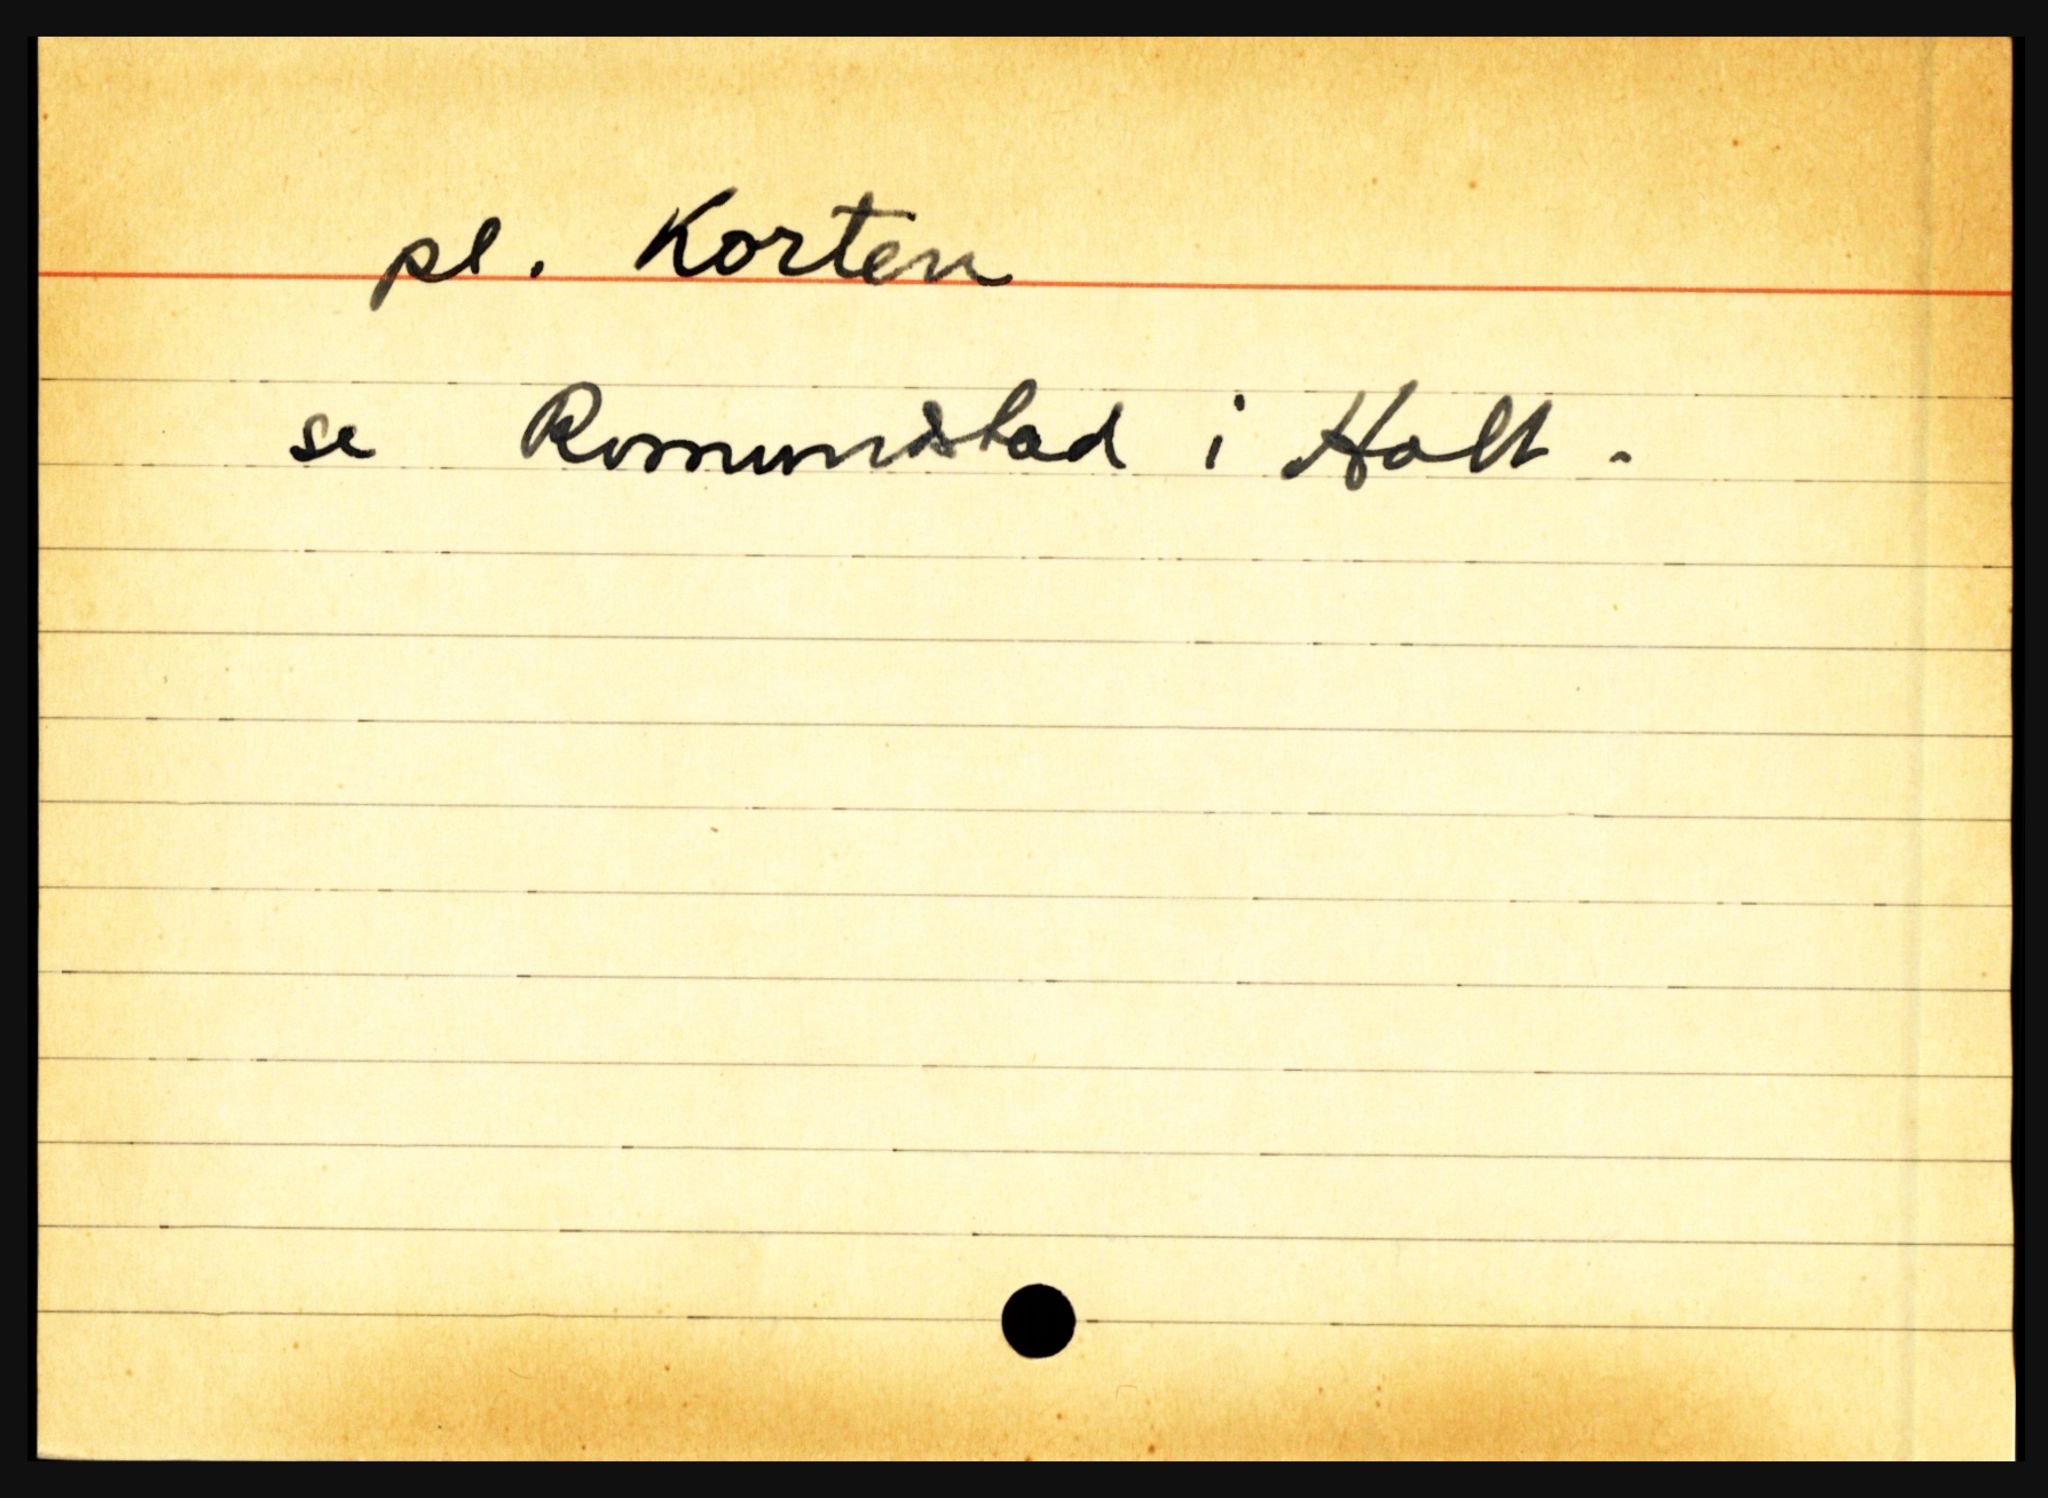 pl. Korten
se Romundstad i Holt.